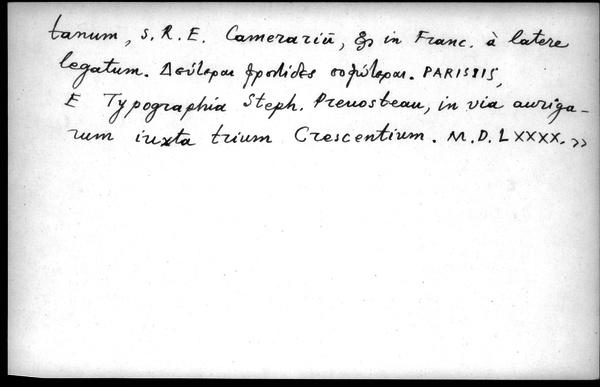 tanum, S.R.E. Camerariũ, & in Franc. à latere
legatum. Δεύτεραι φροντίδες σοφώτεραι. PARISIIS,
E Typographia Steph. Prevosteau, in via auriga-
rum iuxta trium Crescentium. M.D.LXXXX.»